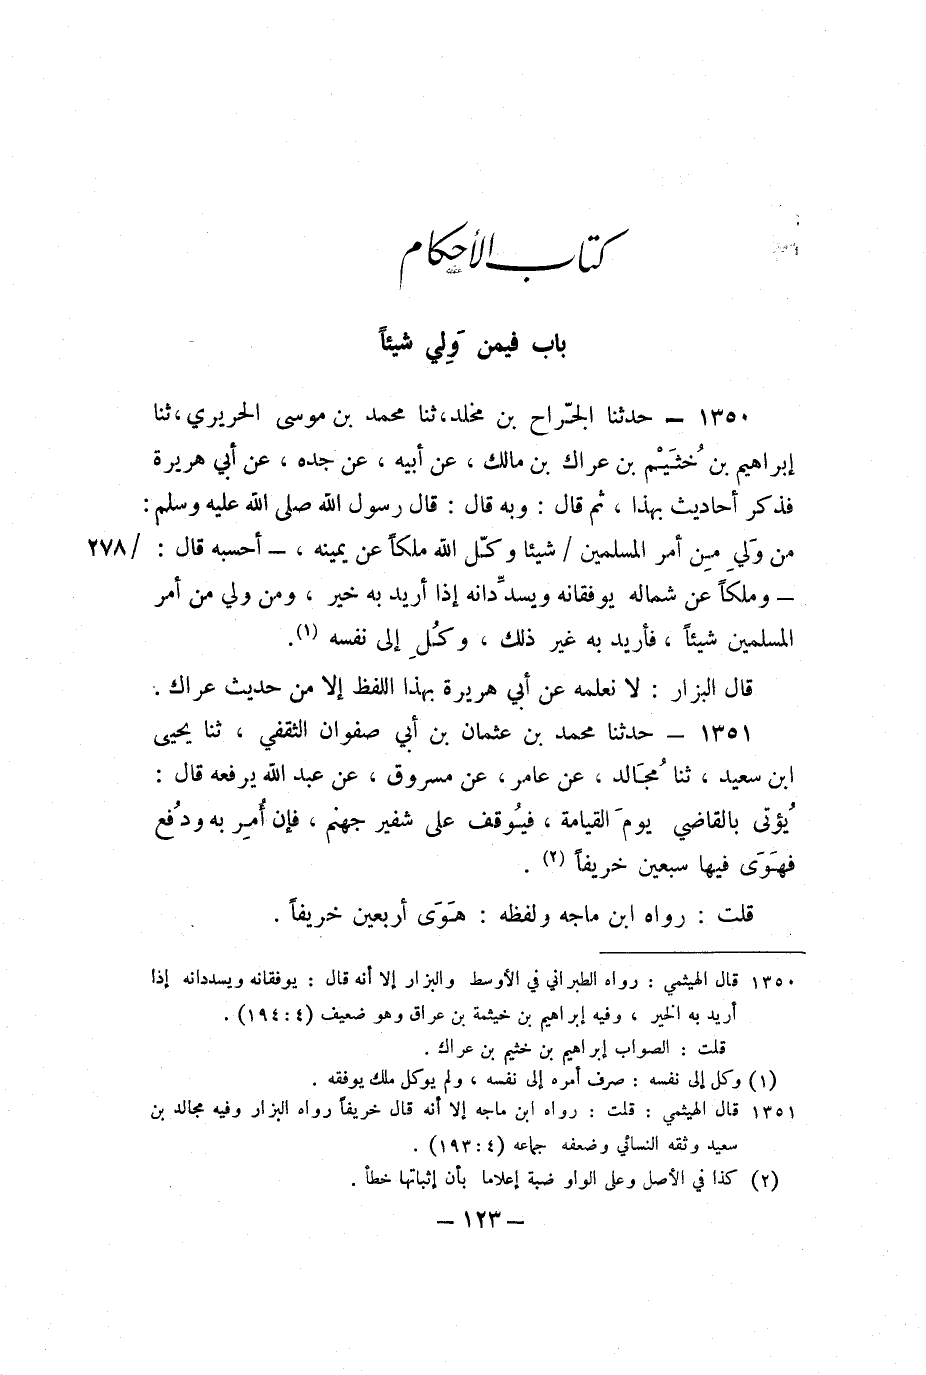 كتاب الأحكام
باب فيمن وَلِي شيئاً
١٣٥٠ – حدثنا الجرّاح بن مخلد، ثنا محمد بن موسى الحريري، ثنا
إبراهيم بن خُثَيْم بن عراك بن مالك ، عن أبيه ، عن جده ، عن أبي هريرة
فذكر أحاديث بهذا ، ثم قال : وبه قال : قال رسول الله صلى الله عليه وسلم :
من وَلي مِن أمر المسلمين / شيئا وكّل الله ملكاً عن يمينه ، – أحسبه قال : / ٢٧٨
– وملكاً عن شماله يوفقانه ويسدِّدانه إذا أريد به خير ، ومن ولي من أمر
المسلمين شيئاً ، فأريد به غير ذلك ، وكُلِ إلى نفسه (١).
قال البزار : لا نعلمه عن أبي هريرة بهذا اللفظ إلا من حديث عراك .
١٣٥١ – حدثنا محمد بن عثمان بن أبي صفوان الثقفي ، ثنا يحيى
ابن سعيد ، ثنا مُجَالد ، عن عامر ، عن مسروق ، عن عبد الله يرفعه قال :
يُؤتى بالقاضي يومَ القيامة ، فيُوقف على شفير جهنم ، فإن أُمِر به ودُفع
فهَوَى فيها سبعين خريفاً (٢) .
قلت : رواه ابن ماجه ولفظه : هَوَى أربعين خريفاً .
١٣٥٠ قال الهيثمي : رواه الطبراني في الأوسط والبزار إلا أنه قال : يوفقانه ويسددانه إذا
أريد به الخير ، وفيه إبراهيم بن خيثمة بن عراق وهو ضعيف (٤:١٩٤) .
قلت : الصواب إبراهيم بن خثيم بن عراك .
(١) وكل إلى نفسه : صرف أمره إلى نفسه ، ولم يوكل ملك يوفقه .
١٣٥١ قال الهيثمي : قلت : رواه ابن ماجه إلا أنه قال خريفاً رواه البزار وفيه مجالد بن
سعيد وثقه النسائي وضعفه جماعه (٤:١٩٣) .
(٢) كذا في الأصل وعلى الواو ضبة إعلاما بأن إثباتها خطأ .
– ١٢٣ –